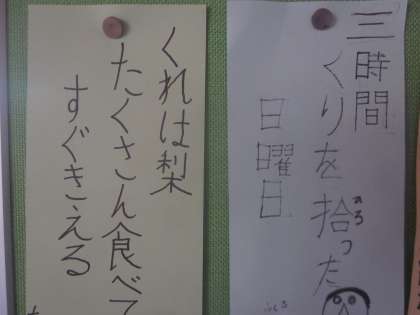 三時間くりを拾った
日曜日
くれは梨
たくさん食べて
すぐきえる